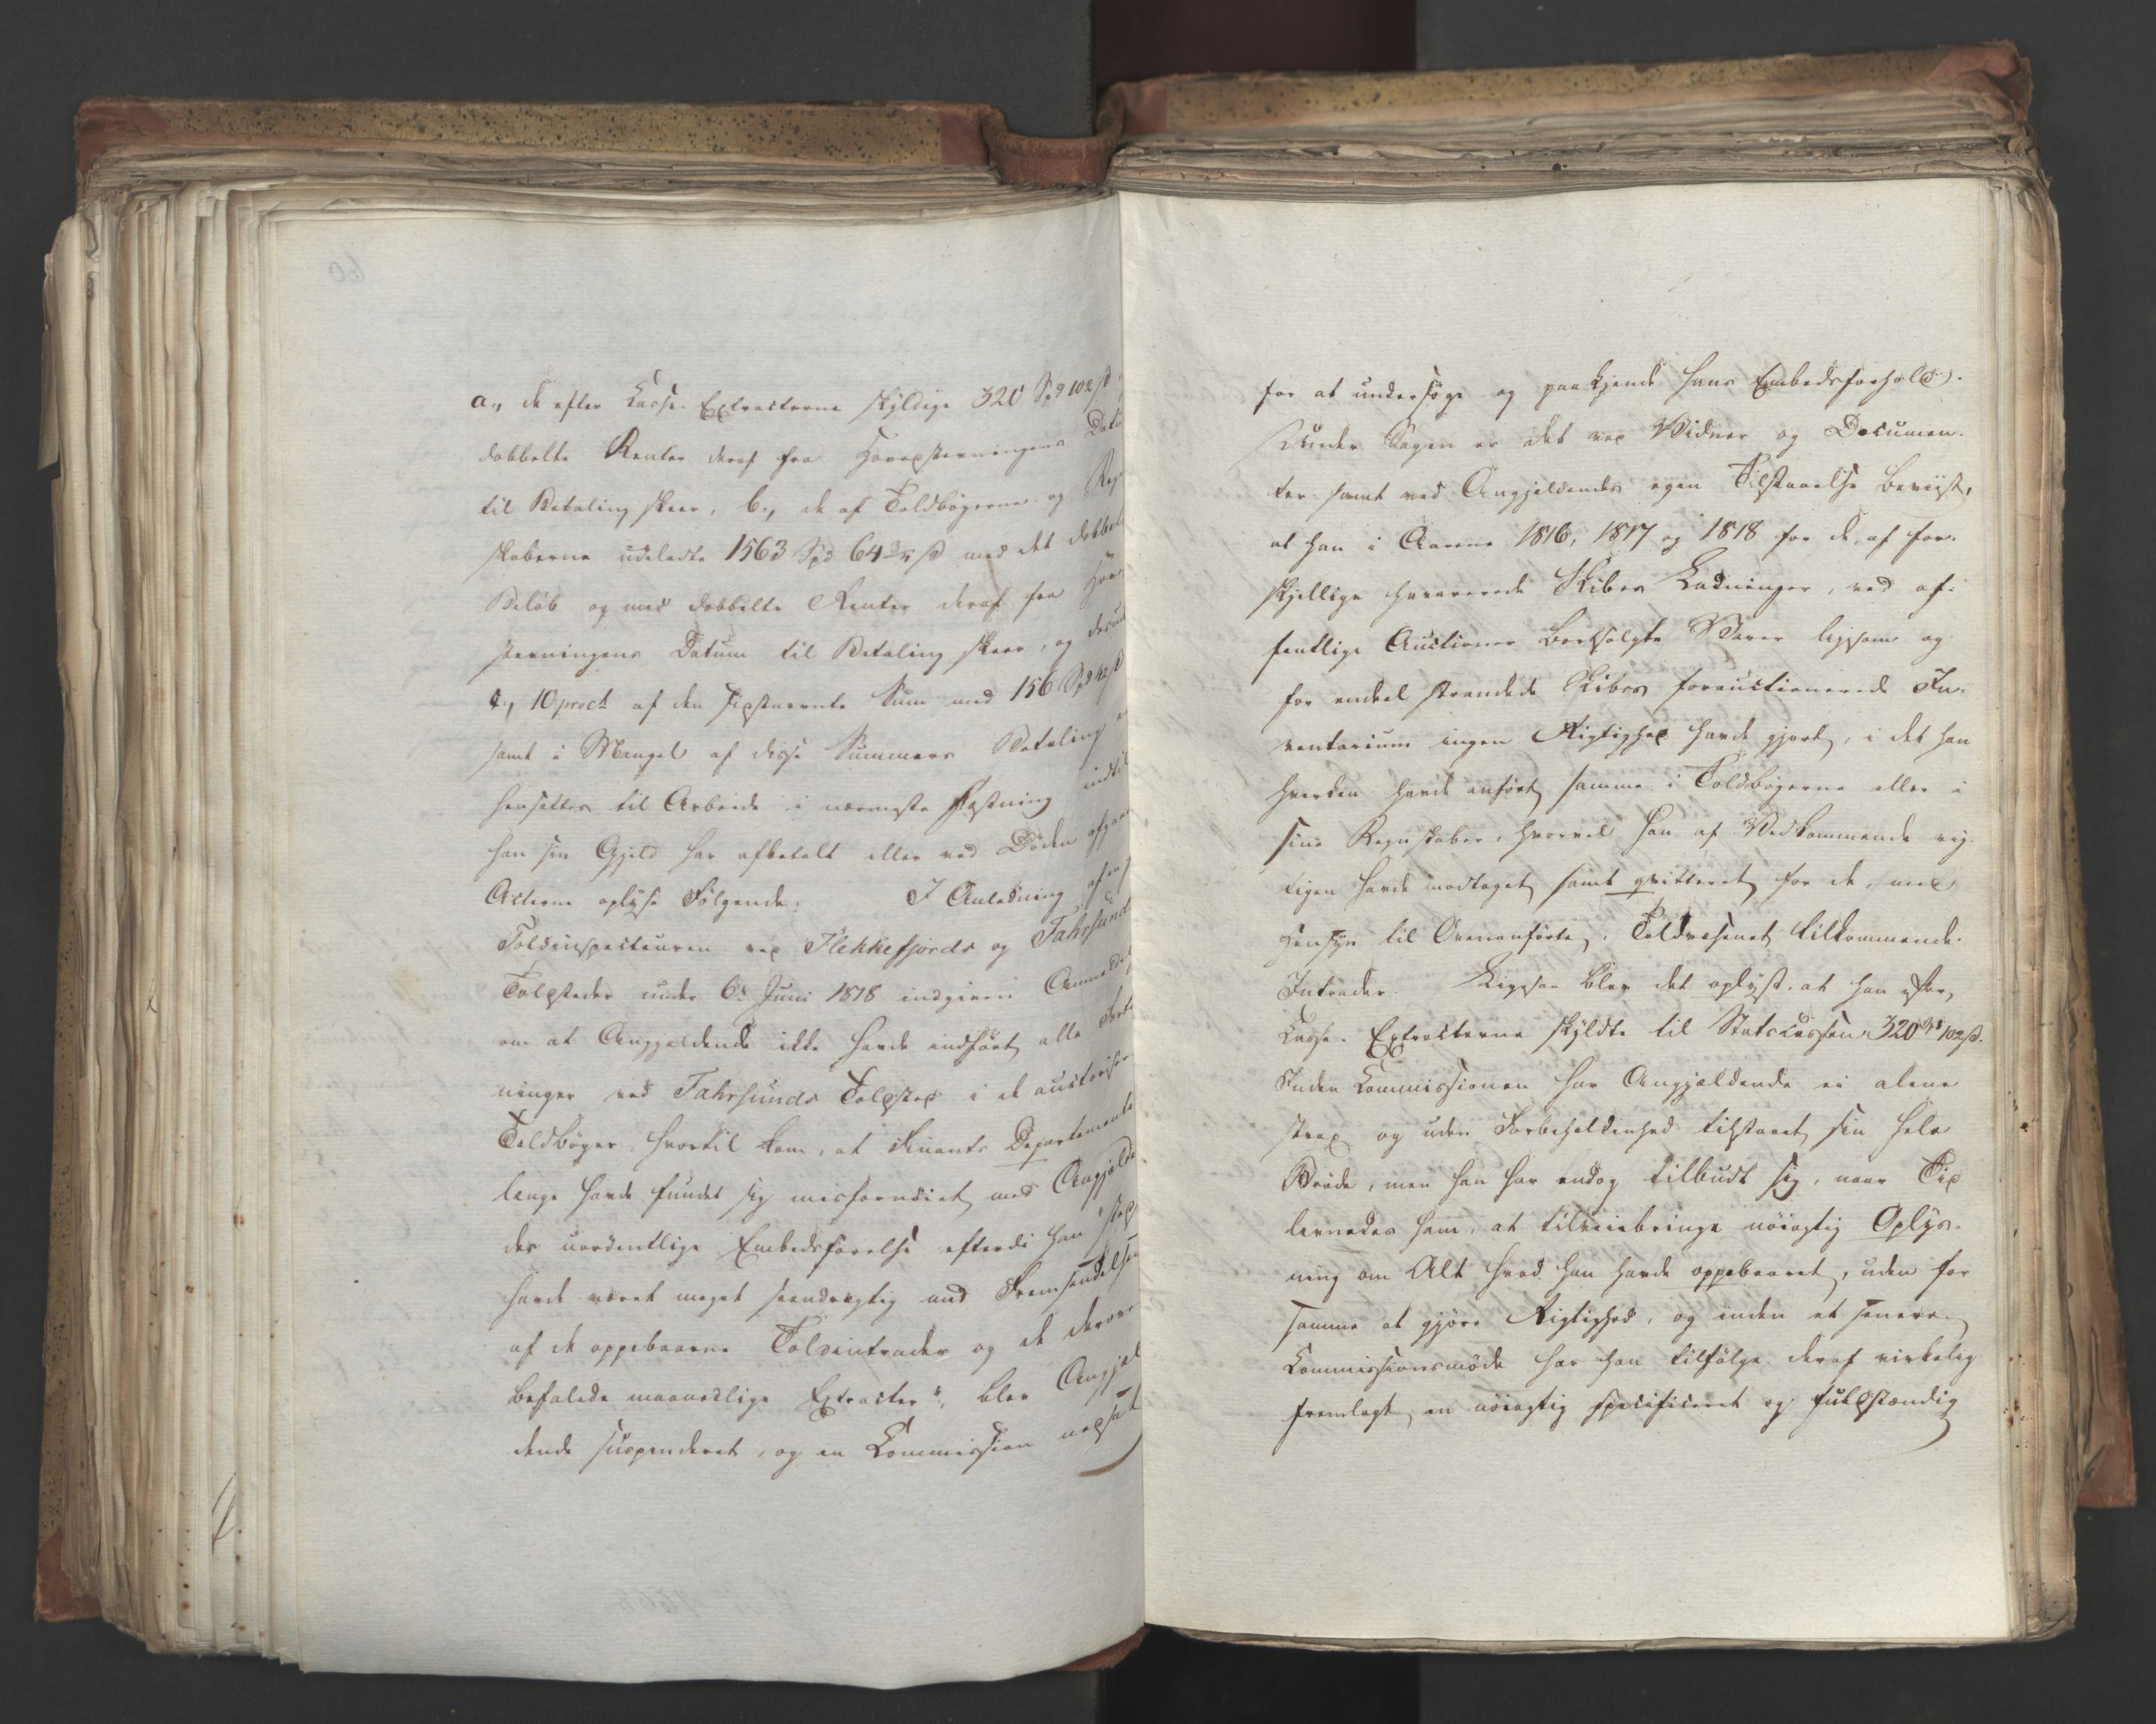 a., de efter Casse-Extracterne skyldige 320 Spd 102 ß
dobbelte Renter deraf fra Hovedstevningens Dato
til Betaling skeer, b., de af Toldbøgerne og Reg
skaberne udeladte 1563 Spd 64 3/5 ß med det dobbel
Beløb og med dobbelte Renter deraf fra Hov
stevningens Datum til Betaling skeer, og desud
c., 10 proct af den sidstnævnte Sum med 156 Spd 42 ß
samt i Mangel af disse Summers Betaling
hensættes til Arbeide i nærmeste Fæstning indtil
han sin Gjeld har afbetalt eller ved Døden afgaar
Acterne oplyse Følgende: I Anledning af en
Toldinspecteuren ved Flekkefjords og Fahrsunds
Toldsteder under 6te Juni 1818 indgiven Anmeldel
om at Angjældende ikke havde indført alle Fort
ninger ved Fahrsunds Toldsted i de auctoriser
Toldbøger, hvortil kom, at Finants Departemente
længe havde fundet sig misfornöiet med Angjælde
des uordentlige Embedsførelse efterdi han "sted
havde været meget seendrægtig med Fremsendelsen
af de oppebaarne Toldintrader og de derove
befalede maanedlige Extracter", blev Angjæl
dende suspenderet, og en Commission nedsat
for at undersøge og paakjende hans Embedsforhold.
Under Sagen er det ved Vidner og Documen-
ter samt ved Angjældendes egen Tilstaaelse beviist,
at han i Aarene 1816, 1817 og 1818 for de, af for-
skjellige havarerede Skibes Ladninger, ved of-
fentlige Auctioner bortsolgte Varer ligesom og
for endeel strandede Skibes forauctionerede In-
ventarium ingen Rigtighed havde gjort, i det han
hverken havde anført samme i Toldbøgerne eller i
sine Regnskaber, hvorvel han af Vedkommende rig-
tigen havde modtaget samt qvitteret for de, med
Hensyn til Ovenanførte, Toldvæsenet tilkommende
Intrader. Ligesaa blev det oplyst, at han efter
Casse-Extracterne skyldte til Statscassen 320 Spd 102 ß.
Inden Commissionen har Angjældende ei alene
strax og uden Forbeholdenhed tilstaaet sin hele
Brøde, men han har endog tilbudt sig, naar Tid
levnedes ham, at tilveiebringe nøiagtig Oplys-
ning om Alt hvad han havde oppebaaret, uden for
samme at gjøre Rigtighed, og inden et senere
Commissionsmøde har han tilfølge deraf virkelig
fremlagt en nøiagtig specificeret og fuldstændig